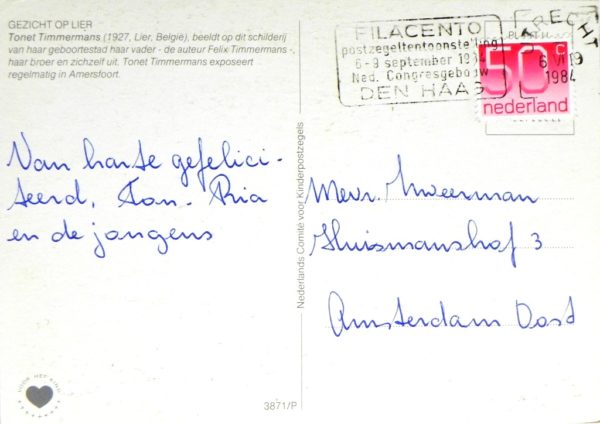 GEZICHT OP LIER
Tonet Timmermans (1927, Lier, België), beeldt op dit schilderij
van haar geboortestad haar vader - de auteur Felix Timmermans -,
haar broer en zichzelf uit. Tonet Timmermans exposeert
regelmatig in Amersfoort.
FILACENTO
postzegeltentoonstelling
6-9 september 1984
Ned. Congresgebouw
DEN HAAG
UTRECHT
6 VI 19
1984
50c
nederland
Van harte gefelici-
teerd, Ton - Ria
en de jongens
Nederlands Comité voor Kinderpostzegels
Mevr. Zweerman
Huismanshof 3
Amsterdam Oost
VOOR HET KIND
3871/P